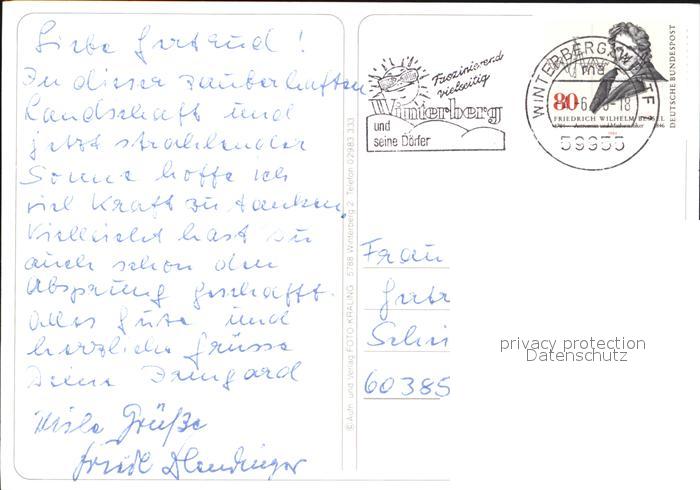 Liebe Gertaud!
In dieser zauberhaften
Landschaft und
jetzt strahlender
Sonne hoffe ich
viel Kraft zu tanken.
Vielleicht hast du
auch schon den
Absprung geschafft.
Alles Gute und
herzliche Grüsse
Deine Irmgard
Viele Grüße
© Aufn. und Verlag FOTO-KRALING 5788 Winterberg 2 Telefon 02983 333
Faszinierend
vielseitig
Winterberg
und
seine Dörfer
WINTERBERG, WESTF
ma
-18
59955
80
DEUTSCHE BUNDESPOST
FRIEDRICH WILHELM BESSEL
1784 Astronom und Mathematiker 1846
Frau
Gert
Schi
60385
privacy protection
Datenschutz